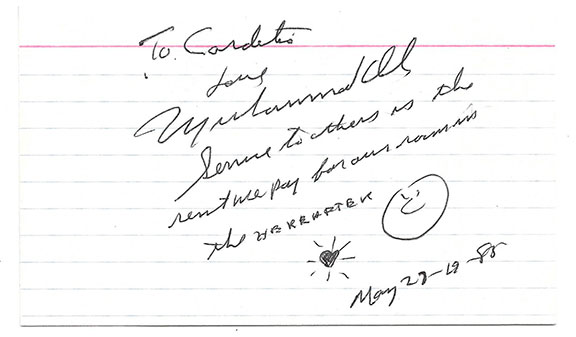 To. Cardetis
Love
Muhammad Ali
Service to others is the
rent we pay for our room in
the HEREAFTER
May 29-19-85